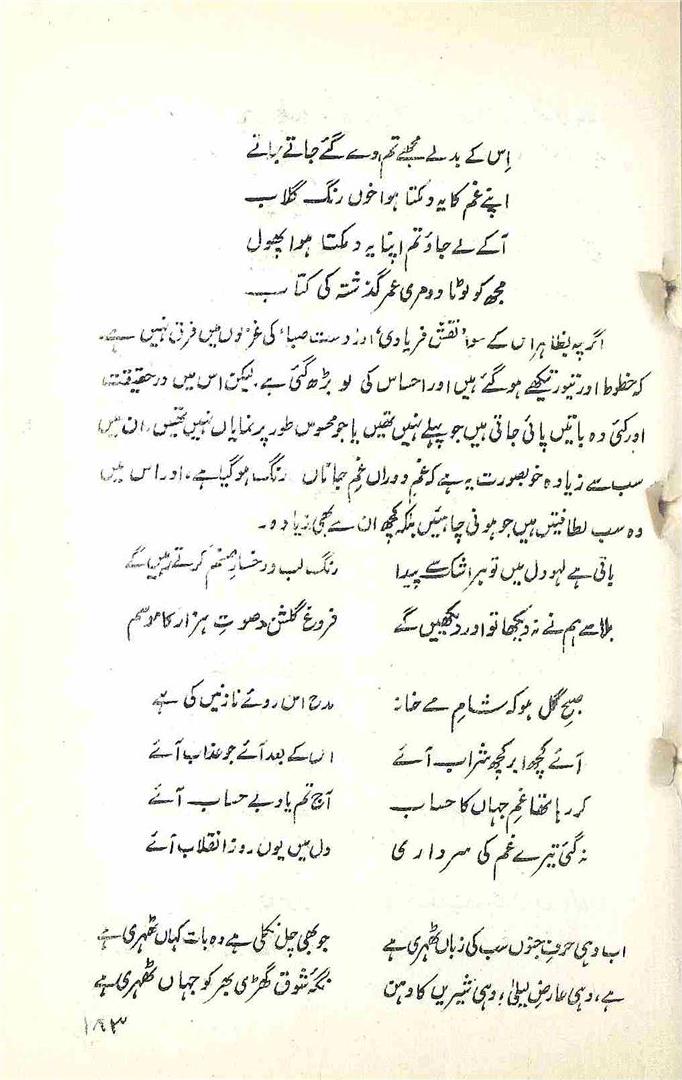 اِس کے بدلے مجھے تم دے گئے جاتے جاتے
اپنے غم کا یہ دمکتا ہوا خوں رنگ گلاب
آکے لے جاؤ تم اپنا یہ دمکتا ہوا پھول
مجھ کو لوٹا دو مری عمرِ گذشتہ کی کتاب
اگرچہ بظاہر اس کے سوا 'نقش فریادی' اور 'دست صبا' کی غزلوں میں فرق نہیں ہے۔
کہ خطوط اور تیور تیکھے ہو گئے ہیں اور احساس کی لو بڑھ گئی ہے۔ لیکن اس میں در حقیقت
اور کئی وہ باتیں پائی جاتی ہیں جو پہلے نہیں تھیں یا جو محسوس طور پر نمایاں نہیں تھیں۔ ان میں
سب سے زیادہ خوبصورت یہ ہے کہ غمِ دوراں غمِ جاناں رنگ ہو گیا ہے، اور اس میں
وہ سب لطافتیں ہیں جو ہونی چاہئیں بلکہ کچھ ان سے بھی زیادہ۔
باقی ہے لہو دل میں تو ہر اشک سے پیدا رنگِ لب و رخسارِ صنم کرتے رہیں گے
بلا سے ہم نے نہ دیکھا تو اور دیکھیں گے فروغِ گلشن و صوتِ ہزار کا موسم
صبحِ گل ہو کہ شامِ مے خانہ مدح اس روئے نازنیں کی ہے
آئے کچھ ابر کچھ شراب آئے اس کے بعد آئے جو عذاب آئے
کر رہا تھا غمِ جہاں کا حساب آج تم یاد بے حساب آئے
نہ گئی تیرے غم کی سرداری دل میں یوں روز انقلاب آئے
اب وہی حرفِ جنوں سب کی زباں ٹھہری ہے جو بھی چل نکلی ہے وہ بات کہاں ٹھہری ہے
ہے وہی عارضِ لیلیٰ، وہی شیریں کا دہن نگہِ شوق گھڑی بھر کو جہاں ٹھہری ہے
۱۸۳